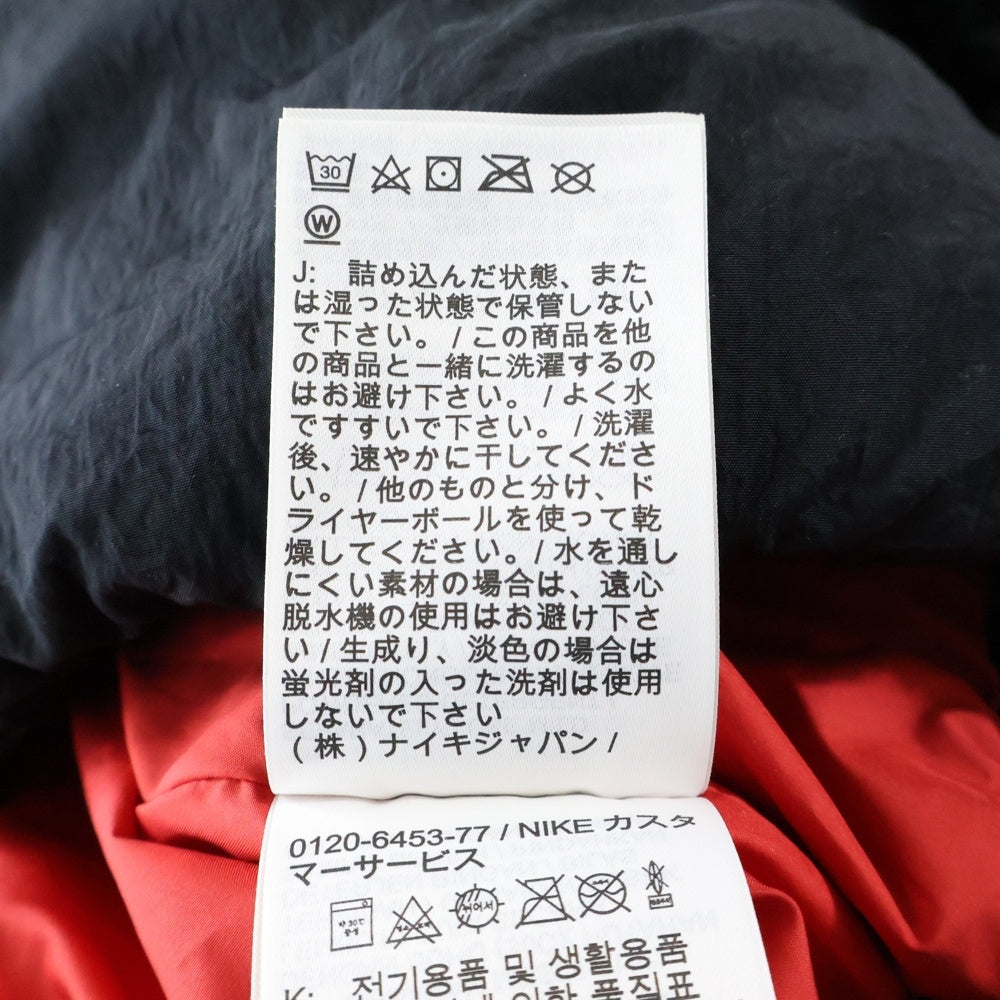 30
W
J: 詰め込んだ状態、また
は湿った状態で保管しない
で下さい。 / この商品を他
の商品と一緒に洗濯するの
はお避け下さい。 / よく水
ですすいで下さい。 / 洗濯
後、速やかに干してくださ
い。 / 他のものと分け、ド
ライヤーボールを使って乾
燥してください。/ 水を通し
にくい素材の場合は、遠心
脱水機の使用はお避け下さ
い / 生成り、淡色の場合は
蛍光剤の入った洗剤は使用
しないで下さい
(株) ナイキジャパン /
0120-6453-77 / NIKE カスタ
マーサービス
K: 전기용품 및 생활용품